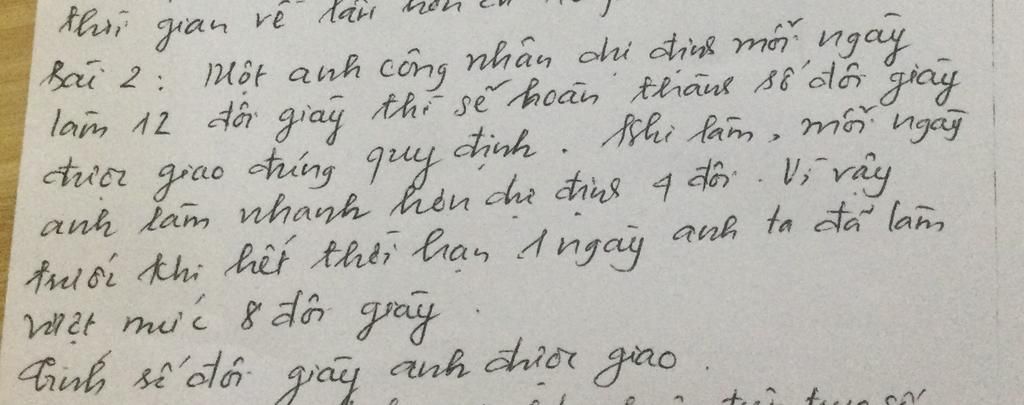 thời gian về
Bài 2: Một anh công nhân dự định mỗi ngày
làm 12 đôi giày thì sẽ hoàn thành số đôi giày
được giao đúng quy định. Khi làm, mỗi ngày
anh làm nhanh hơn dự định 4 đôi. Vì vậy
trước khi hết thời hạn 1 ngày anh ta đã làm
vượt mức 8 đôi giày.
Tính số đôi giày anh được giao.